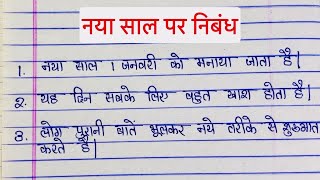 नया साल पर निबंध
1. नया साल 1 जनवरी को मनाया जाता है|
२. यह दिन सबके लिए बहुत खाश होता है|
3. लोग पुरानी बातें भूलकर नये तरीके से शुरूआत
करते है|